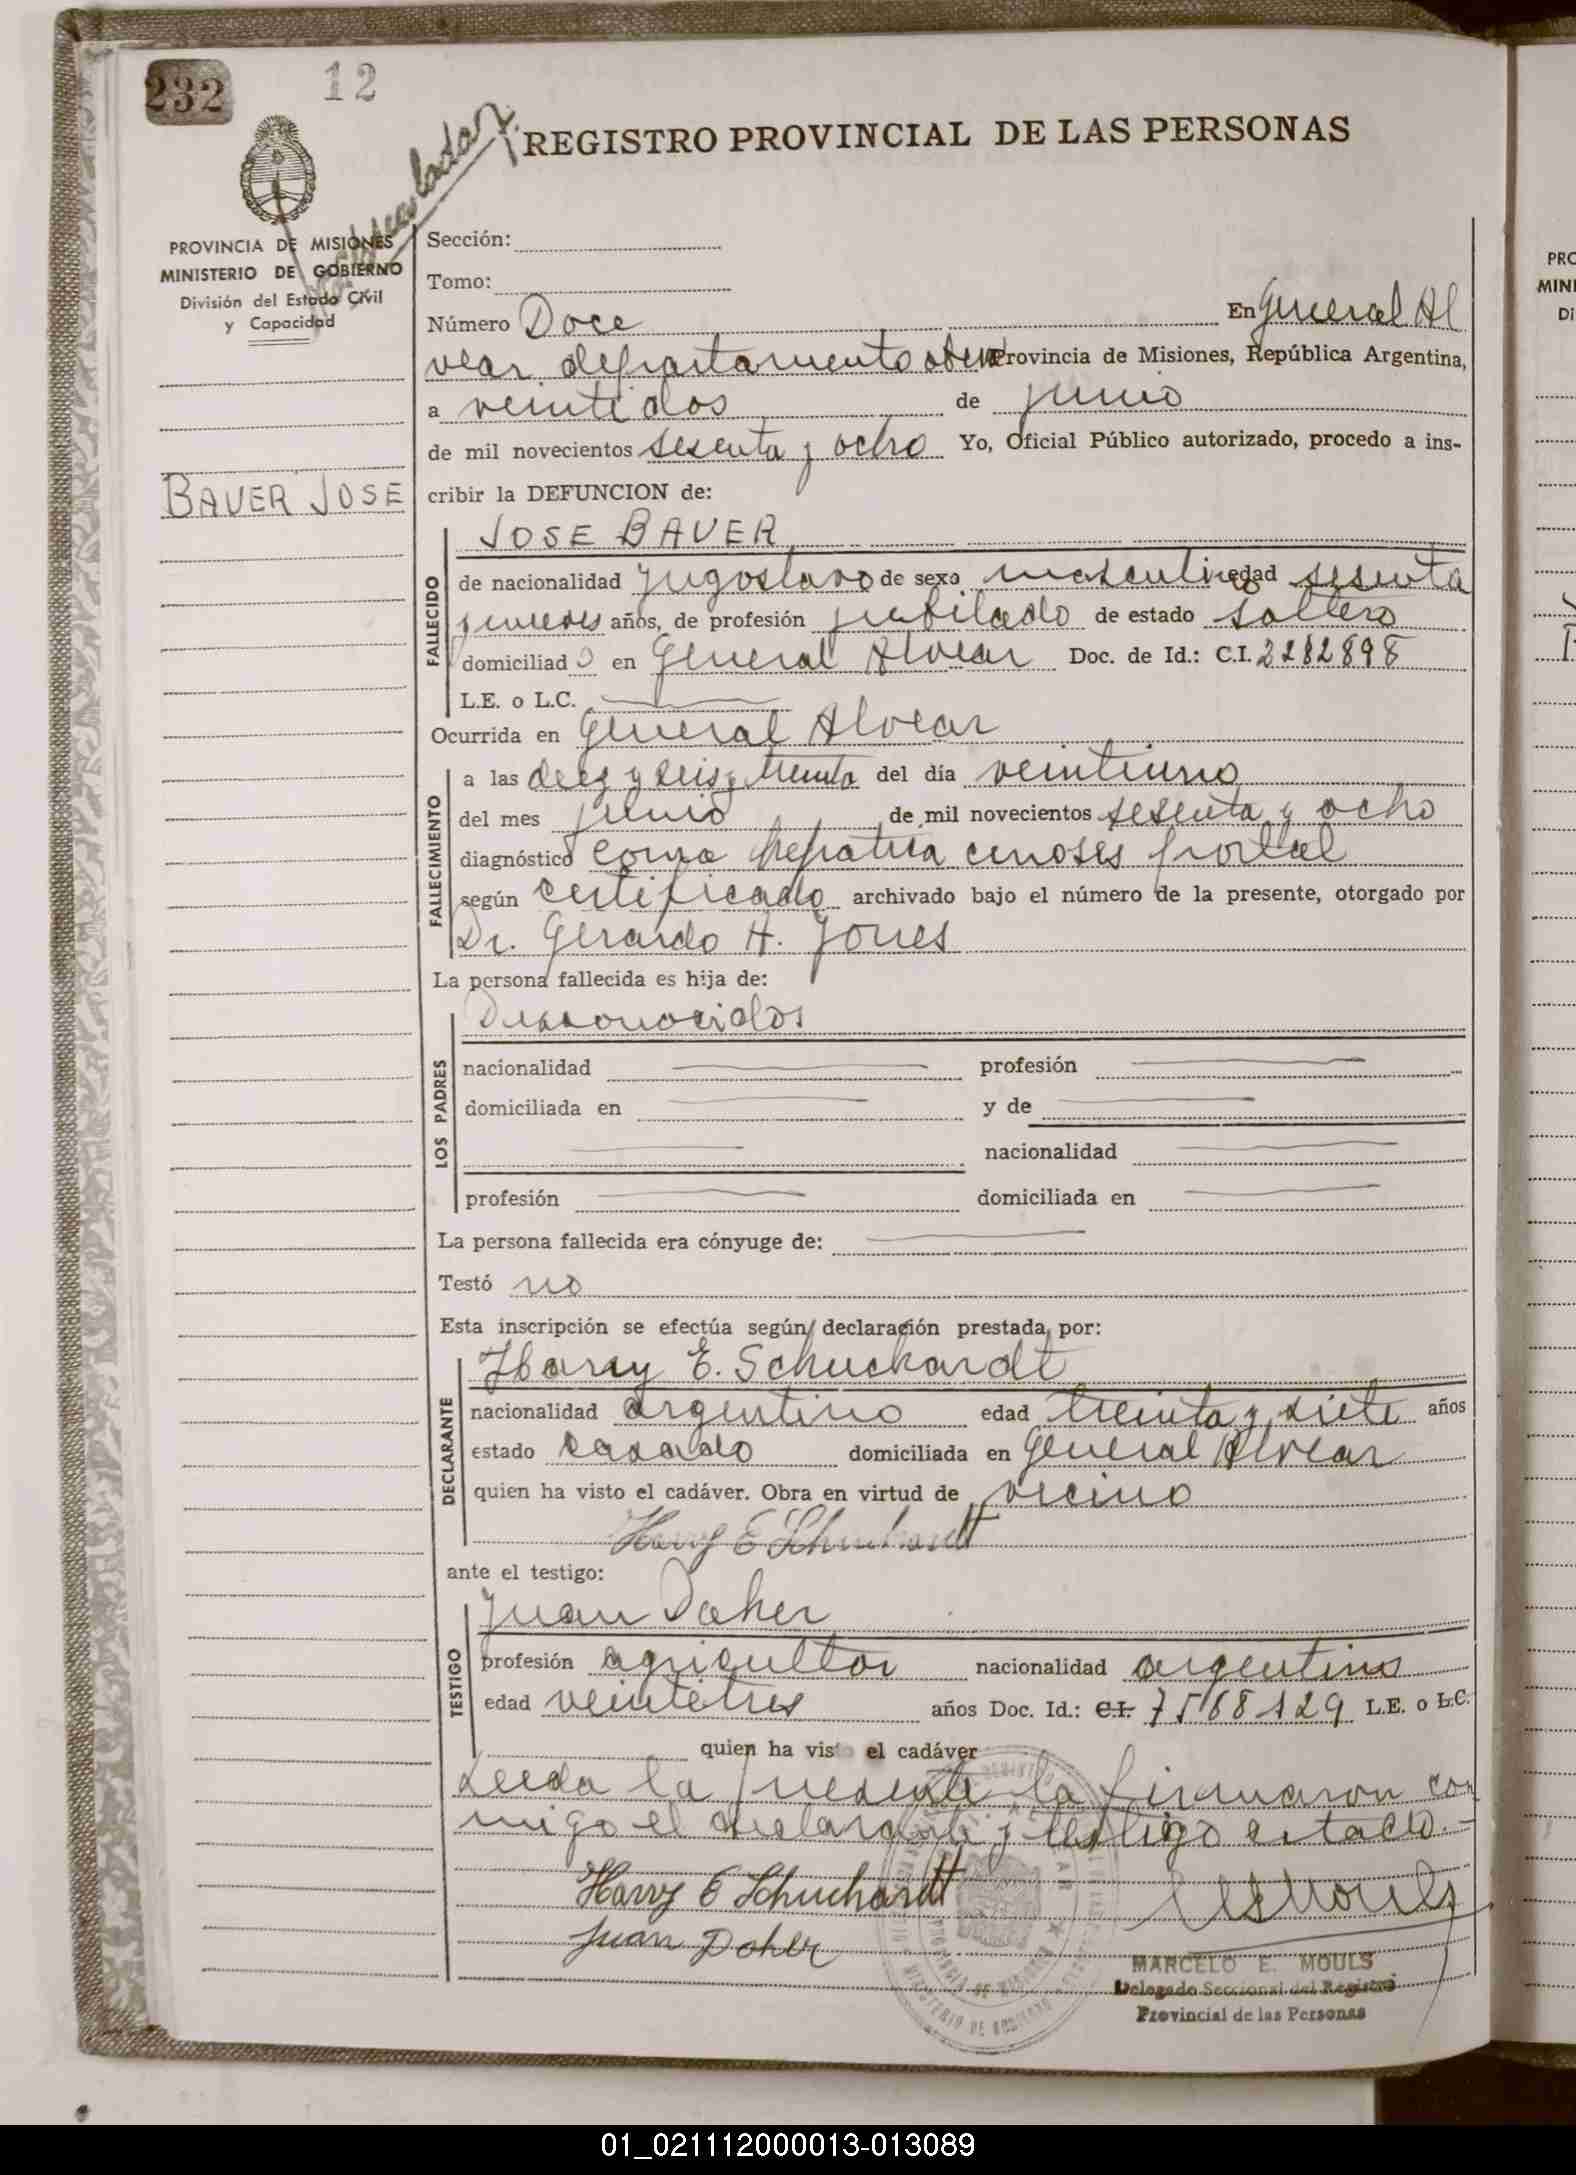 232
12
REGISTRO PROVINCIAL DE LAS PERSONAS
PROVINCIA DE MISIONES
MINISTERIO DE GOBIERNO
División del Estado Civil
y Capacidad
BAUER JOSE
Sección:
Tomo:
Número Doce En General Al
vear departamento oberá Provincia de Misiones, República Argentina,
a veintidos de junio
de mil novecientos sesenta y ocho Yo, Oficial Público autorizado, procedo a ins-
cribir la DEFUNCION de:
FALLECIDO
JOSE BAUER
de nacionalidad yugoslavo de sexo masculino edad sesenta
y nueves años, de profesión jubilado de estado soltero
domiciliado en General Alvear Doc. de Id.: C.I. 2282898
L.E. o L.C.
Ocurrida en General Alvear
FALLECIMIENTO
a las diez y seis y treinta del día veintiuno
del mes junio de mil novecientos sesenta y ocho
diagnóstico coma hepatica portal
según certificado archivado bajo el número de la presente, otorgado por
Dr. Gerardo H. Jones
La persona fallecida es hija de:
LOS PADRES
Desconocidos
nacionalidad profesión
domiciliada en y de
nacionalidad
profesión domiciliada en
La persona fallecida era cónyuge de:
Testó no
Esta inscripción se efectúa según declaración prestada por:
DECLARANTE
Harry E. Schuckardt
nacionalidad argentino edad treinta y siete años
estado casado domiciliada en General Alvear
quien ha visto el cadáver. Obra en virtud de vecino
Harry E Schuchardt
ante el testigo:
TESTIGO
Juan Daher
profesión agricultor nacionalidad argentino
edad veintetres años Doc. Id.: C.I. 7568129 L.E. o L.C.
quien ha visto el cadáver
Leida la presente la firmaron con
migo el declarante y testigo citado.-
Harry E Schuchardt
Juan Daher
MARCELO E. MOULS
Delegado Seccional del Registro
Provincial de las Personas
01_021112000013-013089